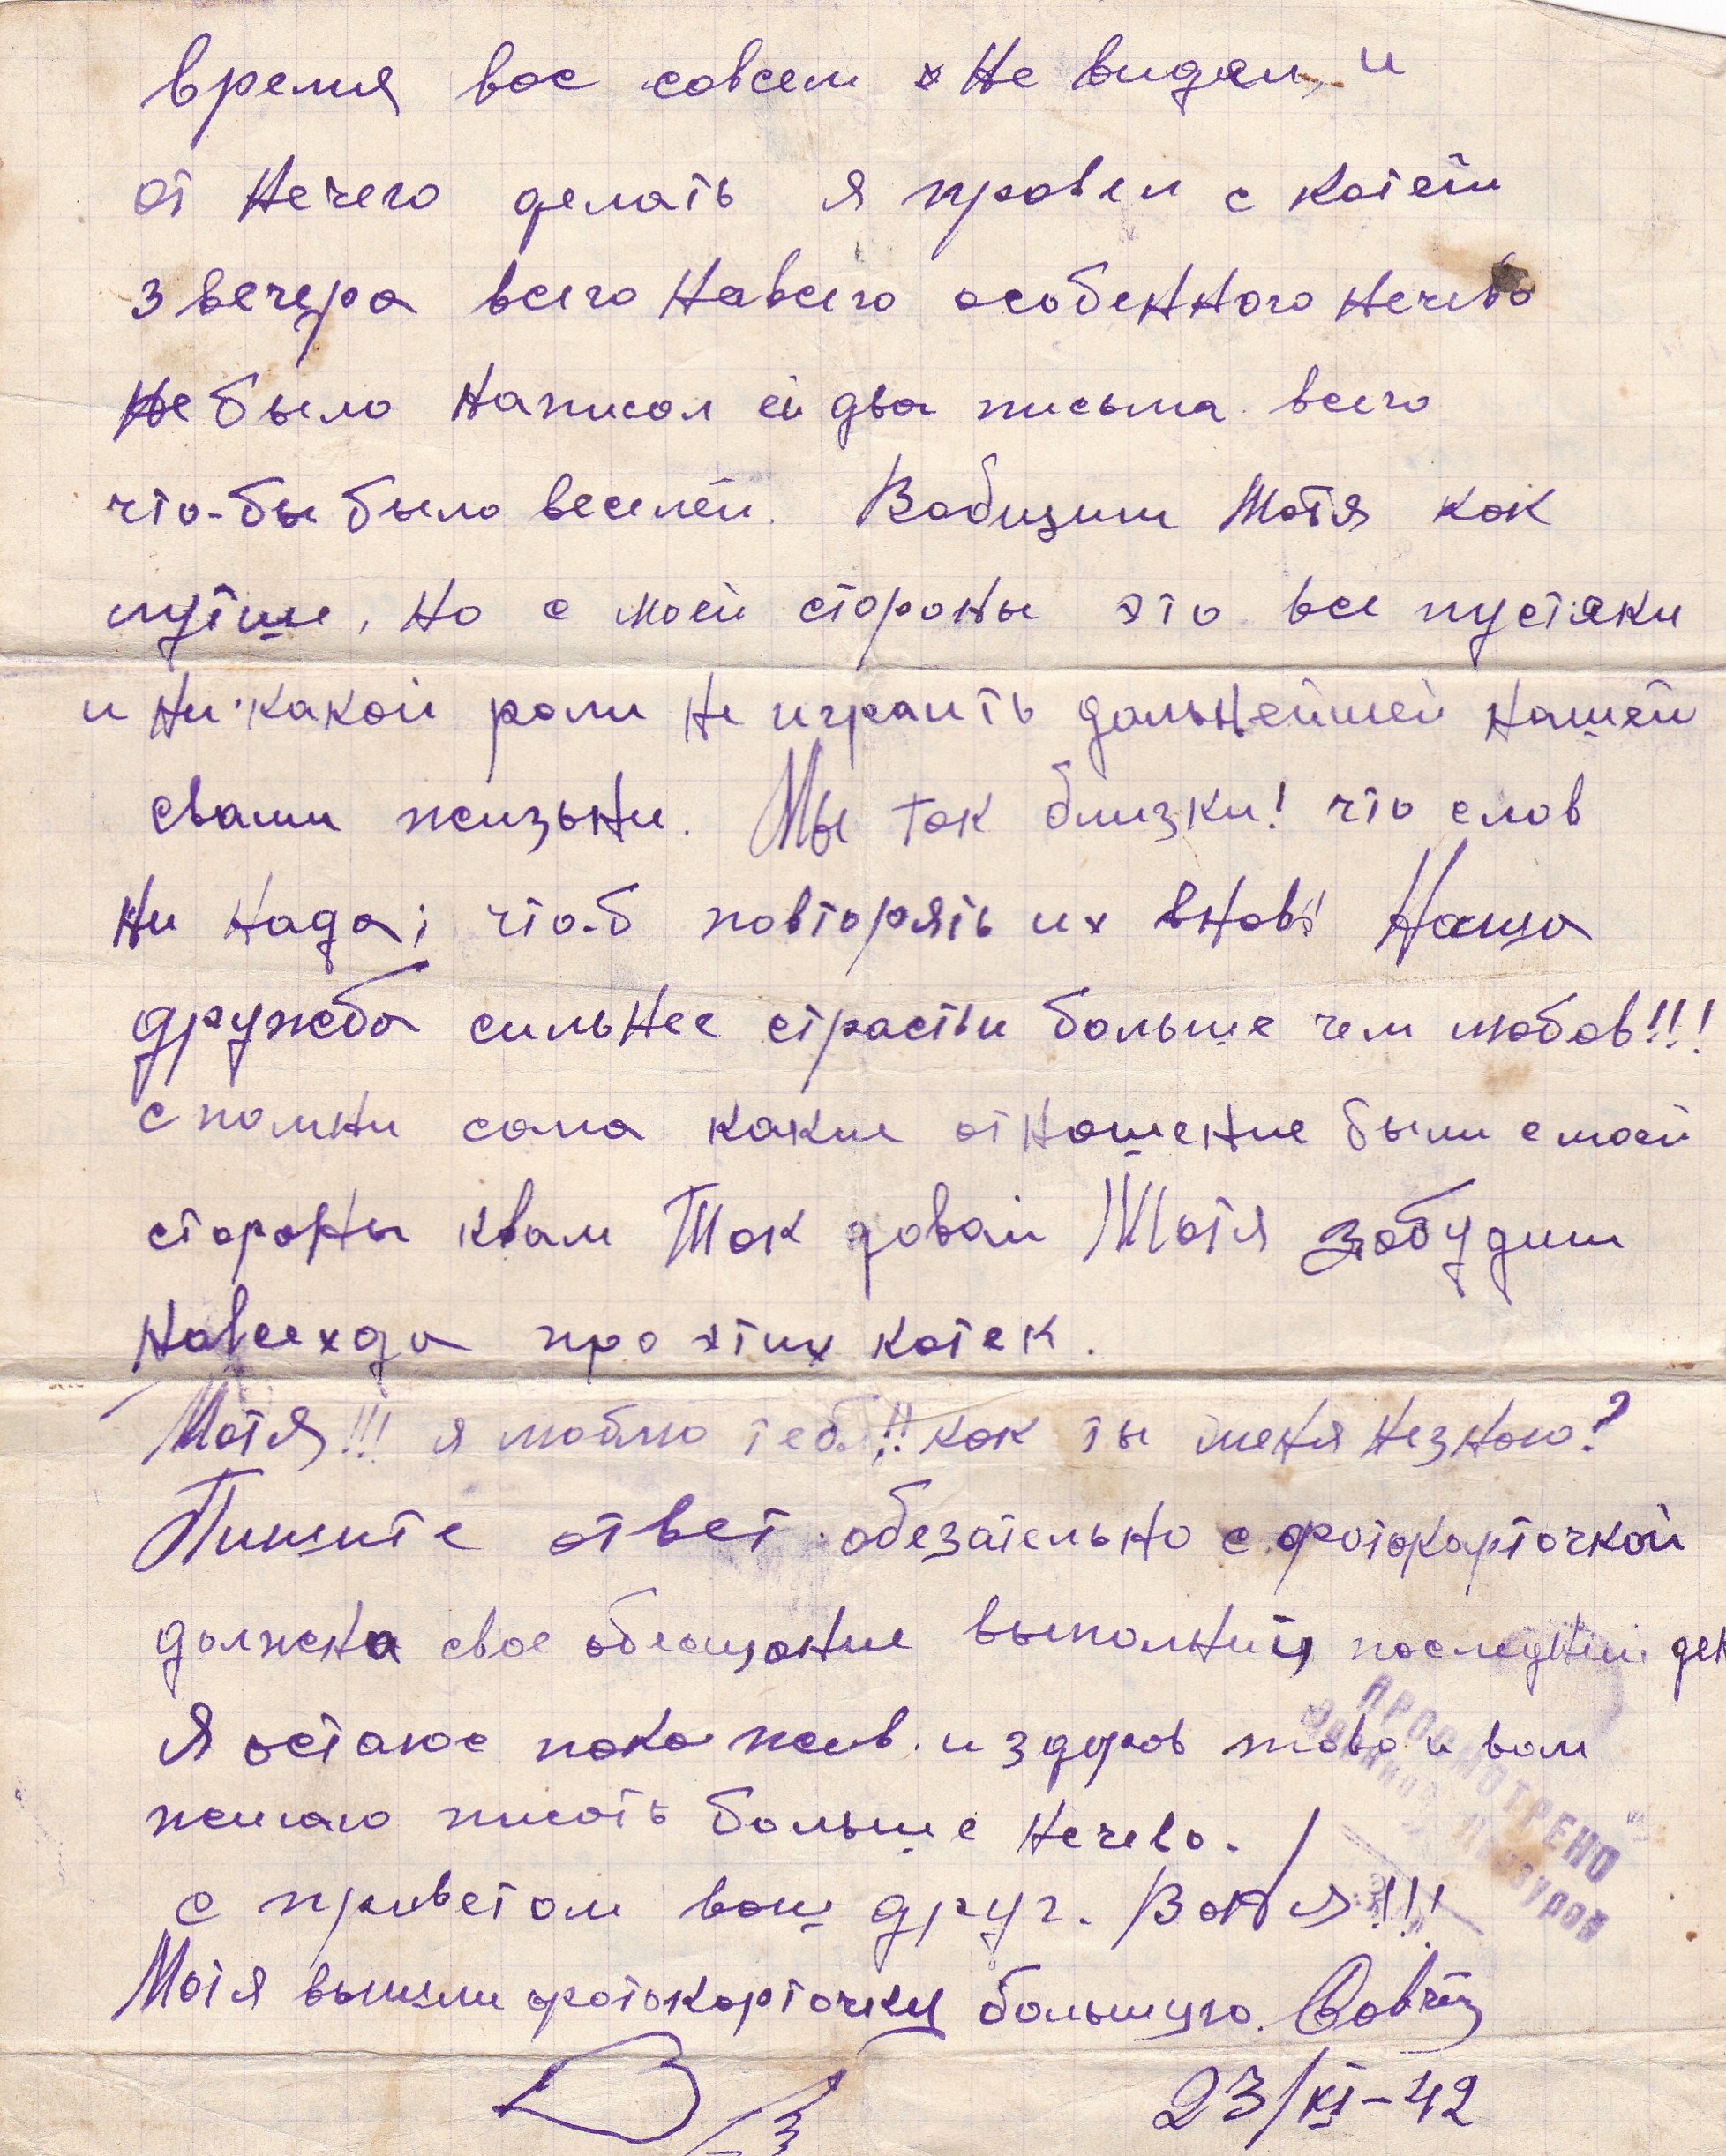 время вас совсем не видел, и
от нечего делать я провел с Катей
3 вечера всего навсего особенного нечево
не было написал ей два письма всего
что-бы было веселей. Вобщим Мотя как
лутше, но с моей стороны это все пустяки
и ни какой роли не играить дальнейшей нашей
свами жизьни. Мы так близки! что слов
ни нада; что-б повторять их вновь! Наша
дружба сильнее страсти больше чем любов!!!
спомни сама какие отношение были смоей
стороны квам Так давай Мотя забудим
навсехда про этих катек.
Мотя!!! я люблю тебя!! как ты меня незнаю?
Пишите ответ обезательно с фотокарточкой
должна свое обещание выполнить последний ден
Я остаюс пока жив. и здоров тово и вам
желаю писать больше нечево.
с приветом ваш друг. Ваня!!!
Мотя вышли фотокарточку большую.
23/XI-42
ПРОСМОТРЕНО
Военной Цензурой